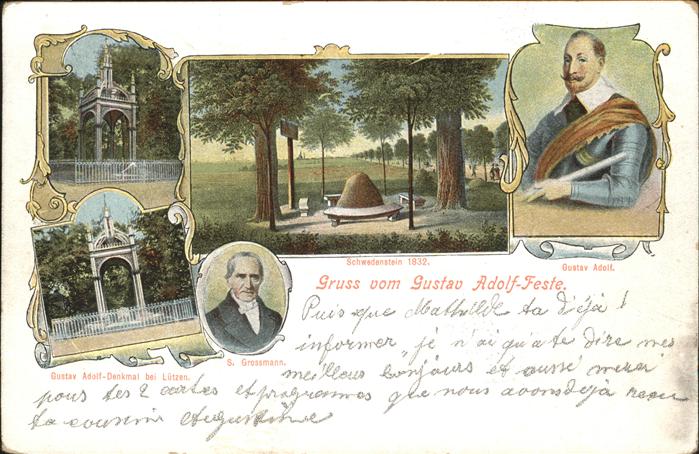 Schwedenstein 1832.
Gustav Adolf.
Gruss vom Gustav Adolf-Feste.
S. Grossmann.
Gustav Adolf-Denkmal bei Lützen.
Puis que Mathilde ta déjà !
informer je n'ai qu'a te dire mes
meilleus bonjours et aussi merci
pour tes 2 cartes et programmes que nous avons déjà recu
ta cousine Augustine